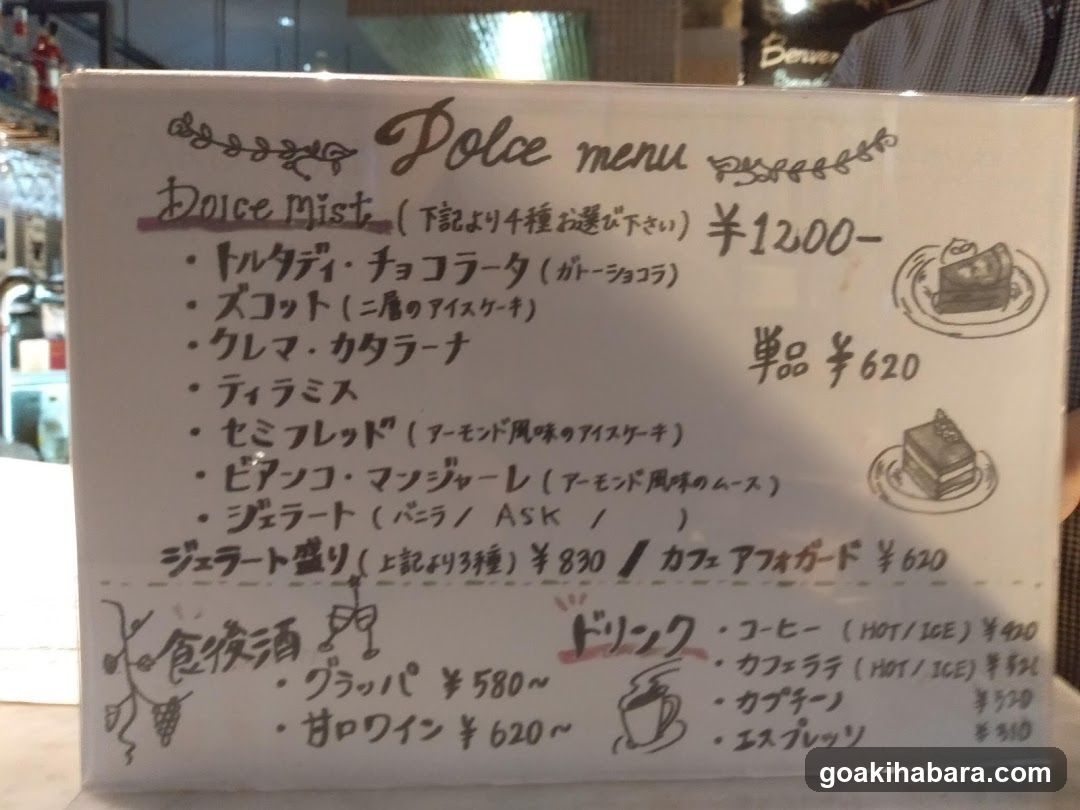 Benven
Dolce menu
Dolce Mist (下記より4種お選び下さい) ¥1200-
・トルタディ・チョコラータ(ガトーショコラ)
・ズコット(二層のアイスケーキ)
・クレマ・カタラーナ
単品 ¥620
・ティラミス
・セミフレッド(アーモンド風味のアイスケーキ)
・ビアンコ・マンジャーレ(アーモンド風味のムース)
・ジェラート(バニラ/ ASK / )
ジェラート盛り(上記より3種) ¥830 / カフェアフォガード ¥620
食後酒
・グラッパ ¥580~
・甘口ワイン ¥620~
ドリンク
・コーヒー (HOT/ICE) ¥420
・カフェラテ(HOT/ICE) ¥520
・カプチーノ ¥520
・エスプレッソ
goakihabara.com